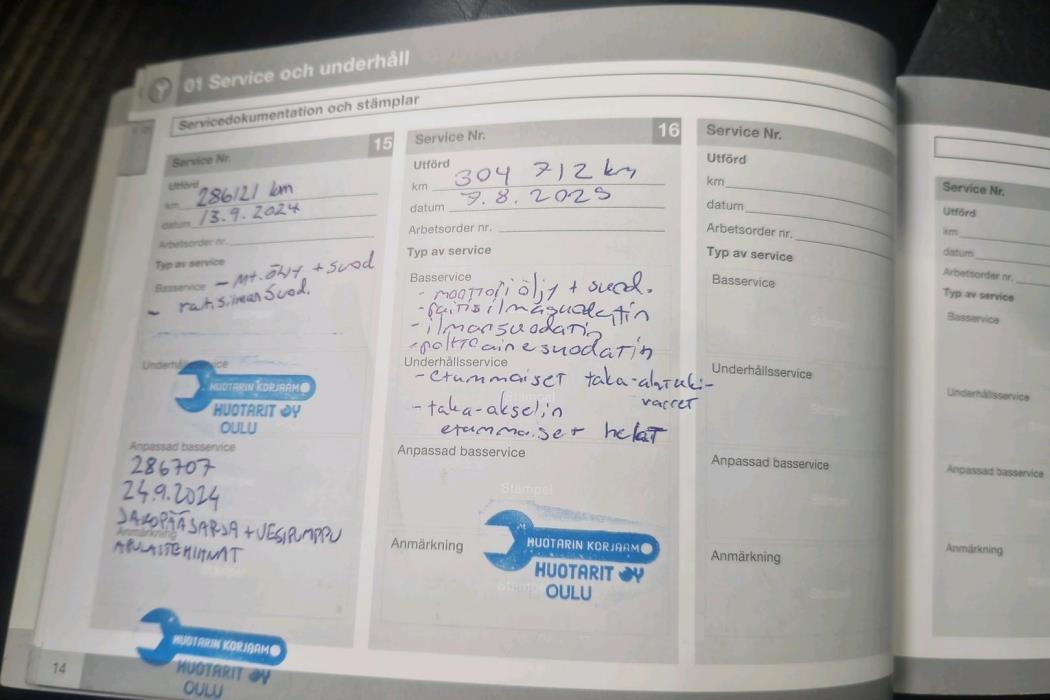 01 Service och underhåll
Servicedokumentation och stämplar
Service Nr. 15
Utförd
km 286121 km
datum 13.9.2024
Arbetsorder nr.
Typ av service
Basservice - Mt. öljy + suod
- raitisilmansuod.
Underhållsservice
HUOTARIN KORJAAMO
HUOTARIT OY
OULU
Anpassad basservice
286707
24.9.2024
JAKOPÄÄSARJA + VESIPUMPPU
Anmärkning
APULAITEHIHNAT
HUOTARIN KORJAAMO
HUOTARIT OY
OULU
14
Service Nr. 16
Utförd
km 304 712 km
datum 7.8.2025
Arbetsorder nr.
Typ av service
Basservice
- moottoriöljy + suod.
- raitisilmasuodatin
- ilmansuodatin
- polttoainesuodatin
Underhållsservice
- etummaiset taka-alatuki-
varret
- taka-akselin
etummaiset helat
Anpassad basservice
Stämpel
Anmärkning
HUOTARIN KORJAAMO
HUOTARIT OY
Stämpel
OULU
Service Nr.
Utförd
km
datum
Arbetsorder nr.
Typ av service
Basservice
Underhållsservice
Anpassad basservice
Anmärkning
Service Nr.
Utförd
km
datum
Arbetsorder nr.
Typ av service
Basservice
Underhållsservice
Anpassad basservice
Anmärkning